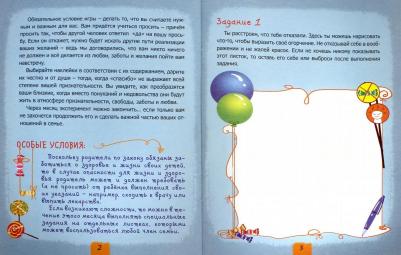 Обязательное условие игры – делать то, что вы считаете нуж-
ным и важным для вас. Вам придётся учиться просить – причём
просить так, чтобы другой человек ответил «да» на вашу прось-
бу. Если он откажет, нужно будет искать другие пути реализации
ваших желаний – ведь мы договорились, что вам никто ничего
не должен и всё делается из любви, заботы и желания пойти вам
навстречу.
Выбирайте наклейки в соответствии с их содержанием, дарите
их честно и от души – тогда, когда «спасибо» не выразит всей
степени вашей признательности. Вы увидите, как преобразятся
ваши близкие, когда вместо понуканий и недовольства они будут
жить в атмосфере признательности, свободы, заботы и любви.
Через месяц эксперимент можно закончить.. если только вам
не захочется продолжить его и сделать важной частью ваших от-
ношений в семье.
ОСОБЫЕ УСЛОВИЯ:
Поскольку родитель по закону обязан за-
ботиться о здоровье и жизни своих детей,
то в случае опасности для жизни и здоро-
вья родитель может и должен требовать
(а не просить) от ребёнка выполнения сво-
их указаний – например, сходить к врачу или
выпить лекарство.
Если возникают сложности, то можно в те-
чение этого месяца выполнять специальные
задания на отдельных листках, которыми
может воспользоваться любой член семьи.
2
Задание 1
Ты расстроен, что тебе отказали. Здесь ты можешь нарисовать
что-то, чтобы выразить своё огорчение. Не отказывай себе в вообра-
жении и не жалей красок. Если не захочешь никому показывать
этот листок, то оставь его себе или выброси после выполнения
задания.
3